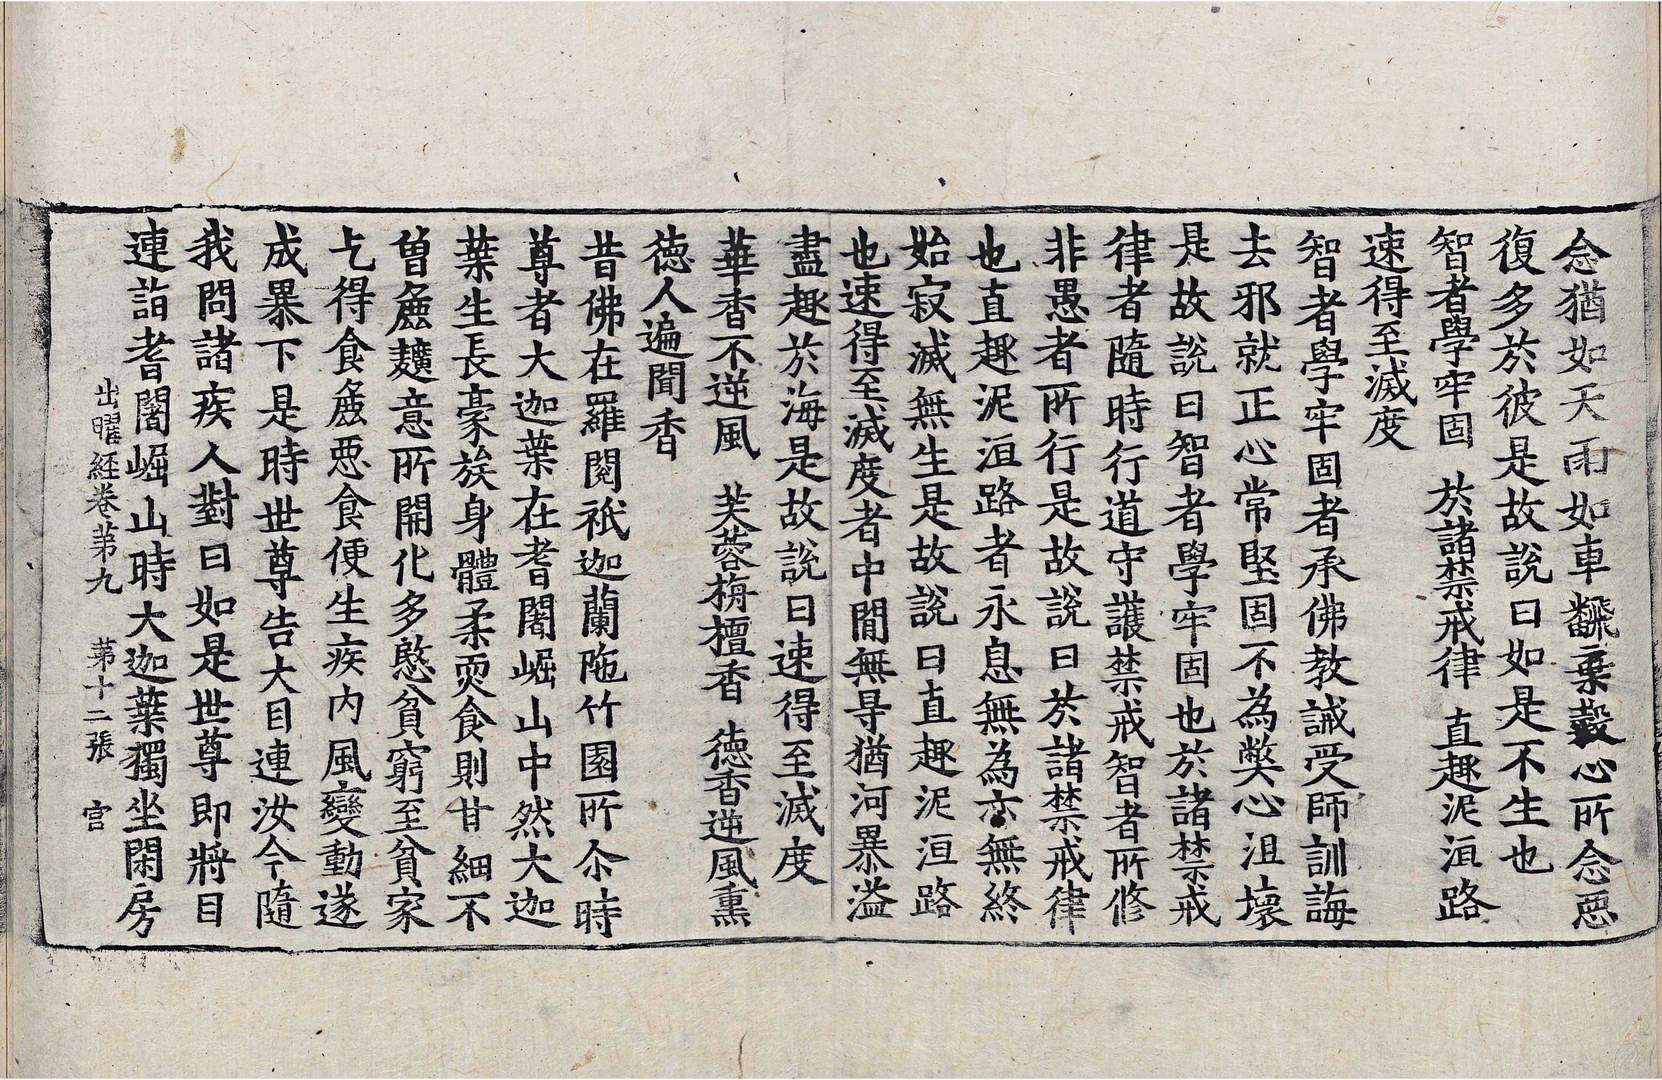 念猶如天雨如車飜棄轂心所念惡
復多於彼是故說曰如是不生也
智者學牢固 於諸禁戒律 直趣泥洹路
速得至滅度
智者學牢固者承佛教誡受師訓誨
去邪就正心常堅固不為弊心沮壞
是故說曰智者學牢固也於諸禁戒
律者隨時行道守護禁戒智者所修
非愚者所行是故說曰於諸禁戒律
也直趣泥洹路者永息無為亦無終
始寂滅無生是故說曰直趣泥洹路
也速得至滅度者中間無㝵猶河暴溢
盡趣於海是故說曰速得至滅度
華香不逆風 芙蓉栴檀香 德香逆風熏
德人遍聞香
昔佛在羅閱祇迦蘭陁竹園所尒時
尊者大迦葉在耆闍崛山中然大迦
葉生長豪族身體柔耎食則甘細不
曾麁䵃意所開化多愍貧窮至貧家
乞得食麁惡食便生疾內風變動遂
成暴下是時世尊告大目連汝今隨
我問諸疾人對曰如是世尊即將目
連詣耆闍崛山時大迦葉獨坐閑房
出曜經卷第九 第十二張 宮